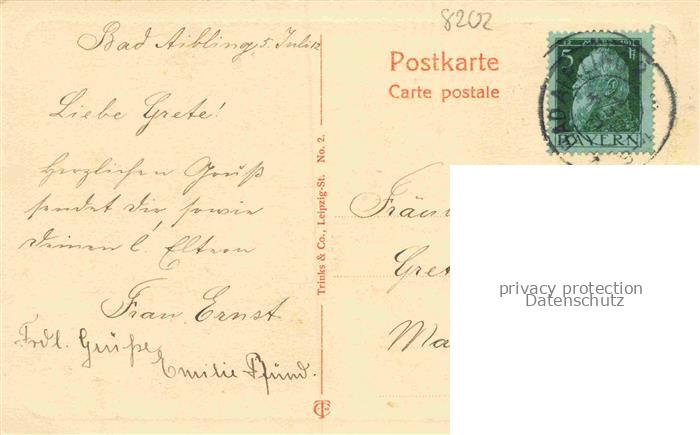 8202
Bad Aibling, 5. Juli 12
Liebe Grete!
Herzlichen Gruß
sendet Dir, sowie
Deinen l. Eltern
Frau Ernst
Frdl. Grüße
Emilie Pfund.
Trinks & Co., Leipzig-St. No. 2.
Postkarte
Carte postale
5
BAYERN
Fräul
Gret
Ma
privacy protection
Datenschutz